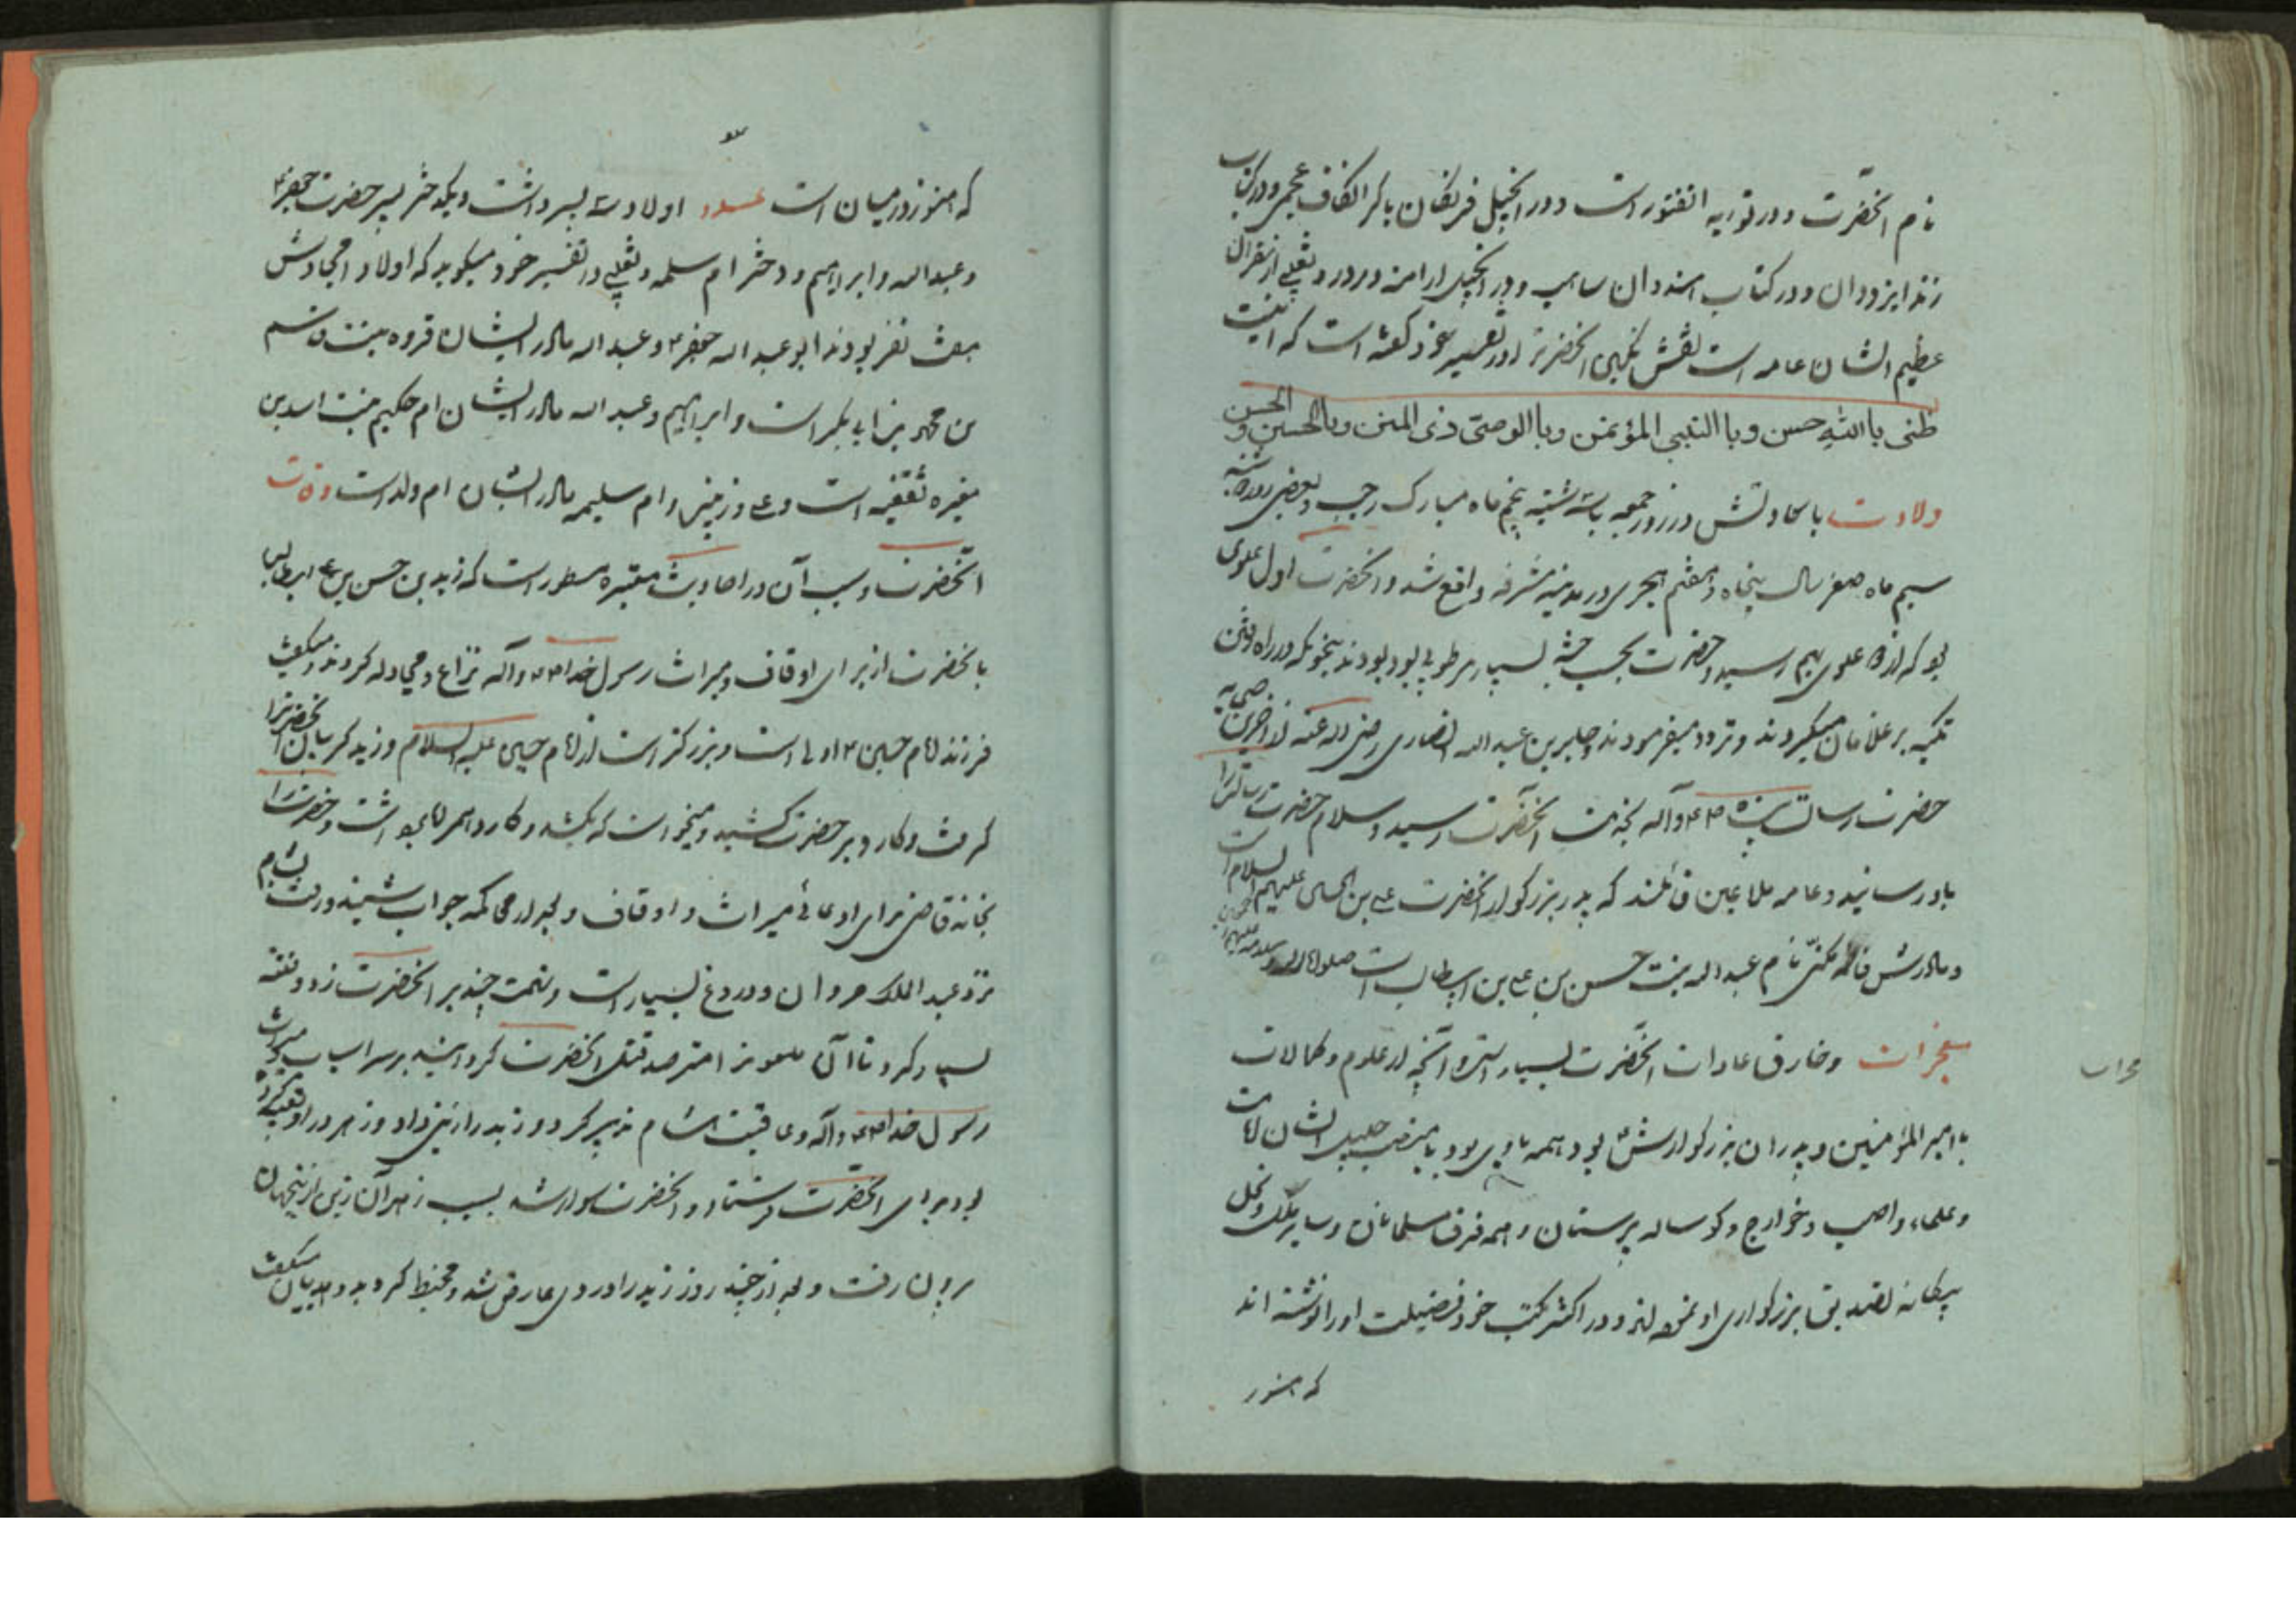 نام انحضرت و در توریه انفتور است و در انجیل فرنکان با کر الکاف عجمی و در کتاب
زند ایزودان و در کتاب هندوان ساهب و در انجیل ارامنه و ثعلبی از مفسران
عظیم الشان عامه است نقش نکین انحضرترا در تفسیر خود کفته است که اینست
ظنی باالله حسن وباالنبی المؤتمن وباالوصی ذی المنن وبالحسین والحسن
ولادت با سعادتش در روز جمعه یا سه شنبه پنجم ماه مبارک رجب و بعضی روز شنبه
سیم ماه صفر سال پنجاه و هفتم هجری در مدینه مشرفه واقع شد و انحضرت اول علوی
بود که از دو علوی بهم رسید و حضرت بحسب جثه بسیار مرطوبی بود بودند بنحویکه در راه رفتن
تکیه بر غلامان میکردند و تردد میفرمودند و جابر بن عبد الله انصاری رضی الله عنه از اخرین صحابه
حضرت رسالت پناه ص ع و آله بخدمت انحضرت رسید و سلام حضرت رسالترا
باو رسانید و عامه ملاعین قائلند که پدر بزرکوار انحضرت علی بن الحسین علیهم السلام است
و مادرش فاطمه مکنی بام عبد الله بنت حسن بن علی بن ابیطالب است صلوات الله و سلامه علیهم اجمعین
معجزات و خارق عادات انحضرت بسیار است و آنچه از علوم و کمالات
با امیر المؤمنین و پدران بزرکوارش ع بود همه با وی بود با منصب جلیل الشان امامت
و علماء نواصب و خوارج و کوساله پرستان و همه فرق مسلمانان و سایر ملک و نحل
بیکانه تصدیق بزرکواری او نموده اند و در اکثر کتب خود فضیلت او را نوشته اند
که هنوز
که هنوز در میان است عدد اولاد سه پسر داشت و یکدختر پسر حضرت جعفر ع
و عبد الله و ابراهیم و دختر ام سلمه و ثعلبی در تفسیر خود میکوید که اولاد امجادش
هفت نفر بودند ابو عبد الله جعفر ع و عبد الله مادر ایشان قروه بنت قاسم
بن محمد بن ابی بکر است و ابراهیم و عبد الله مادر ایشان ام حکیم بنت اسد بن
مغیره ثقفیه است و علی و زینب و ام سلیمه مادر ایشان ام ولد است وفات
انحضرت و سبب آن در احادیث معتبره مسطور است که زید بن حسن بن علی ابیطالب
بانحضرت از برای اوقاف و میراث رسول خدا ص ع و آله نزاع و مجادله کردند و میکفت
فرزند امام حسن ع اولی است و بزرکتر است از امام حسین علیه السلام و زید کریبان انحضرترا
کرفت و کارد بر حضرت کشید و میخواست که بکشد و کارد اهسر و حضرترا
بخانه قاضی برای ادعای میراث و اوقاف و بعد از محاکمه جواب شنید و رفت بشام
نزد عبد الملک مروان و دروغ بسیار است و تهمت چند بر انحضرت زد و فتنه
بسیار کرد تا آن ملعونرا مترصد قتل انحضرت کردانید بر سر اسب و میراث
رسول خدا ص ع و آله و عاقبت هشام تدبیر کرد و زید را زین داد و زهر در او تعبیه کرده
بود برای انحضرت فرستاد و انحضرت سوار شد بسبب زهر آن زین از اینجهان
بیرون رفت و بعد از چند روز زید را دردی عارض شد و مخبط کردید و هذیان میکفت